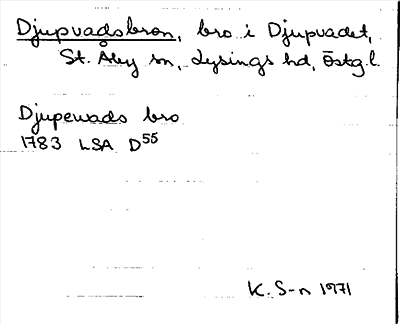 Djupvadsbron, bro i Djupvadet,
St. Åby sn, Lysings hd, Östg.l.
Djupewads bro
1783 LSA D55
K. S-n 1971